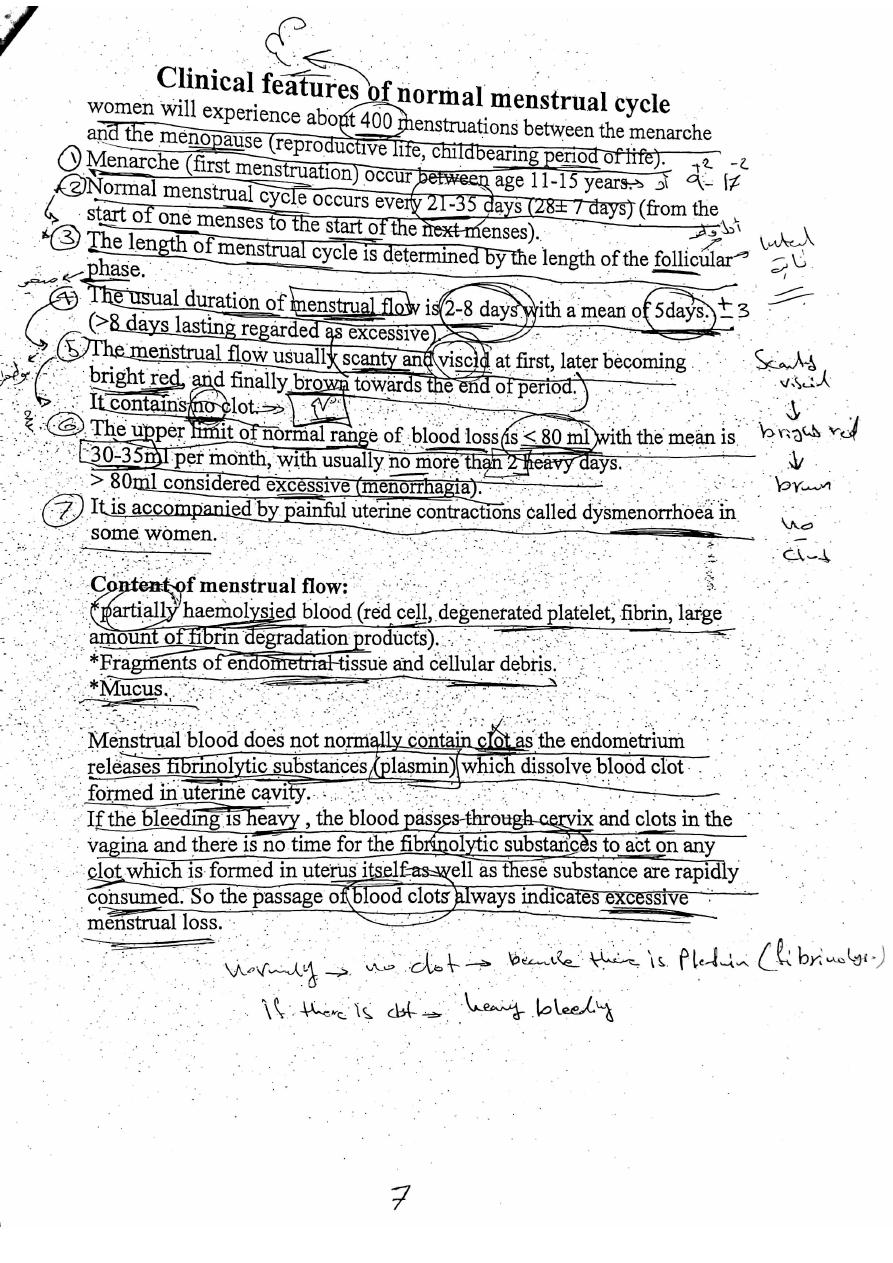 Clinical features of normal menstrual cycle
women will experience about 400 menstruations between the menarche
and the menopause (reproductive life, childbearing period of life).
① Menarche (first menstruation) occur between age 11-15 years → 9 - 17
+2 -2
② Normal menstrual cycle occurs every 21-35 days (28± 7 days) (from the
start of one menses to the start of the next menses).
③ The length of menstrual cycle is determined by the length of the follicular
phase.
luteal
ثابت
④ The usual duration of menstrual flow is 2-8 days with a mean of 5days. ± 3
(>8 days lasting regarded as excessive)
⑤ The menstrual flow usually scanty and viscid at first, later becoming
bright red, and finally brown towards the end of period.
It contains no clot. → No
Scanty
viscid
↓
bright red
↓
brown
no
clot
⑥ The upper limit of normal range of blood loss is < 80 ml with the mean is
30-35ml per month, with usually no more than 2 heavy days.
> 80ml considered excessive (menorrhagia).
⑦ It is accompanied by painful uterine contractions called dysmenorrhoea in
some women.
Content of menstrual flow:
*partially haemolysied blood (red cell, degenerated platelet, fibrin, large
amount of fibrin degradation products).
*Fragments of endometrial tissue and cellular debris.
*Mucus.
Menstrual blood does not normally contain clot as the endometrium
releases fibrinolytic substances (plasmin) which dissolve blood clot
formed in uterine cavity.
If the bleeding is heavy , the blood passes through cervix and clots in the
vagina and there is no time for the fibrinolytic substances to act on any
clot which is formed in uterus itself as well as these substance are rapidly
consumed. So the passage of blood clots always indicates excessive
menstrual loss.
normly → no clot → because there is (fibrinolys.)
if there is clot → heavy bleedig
7